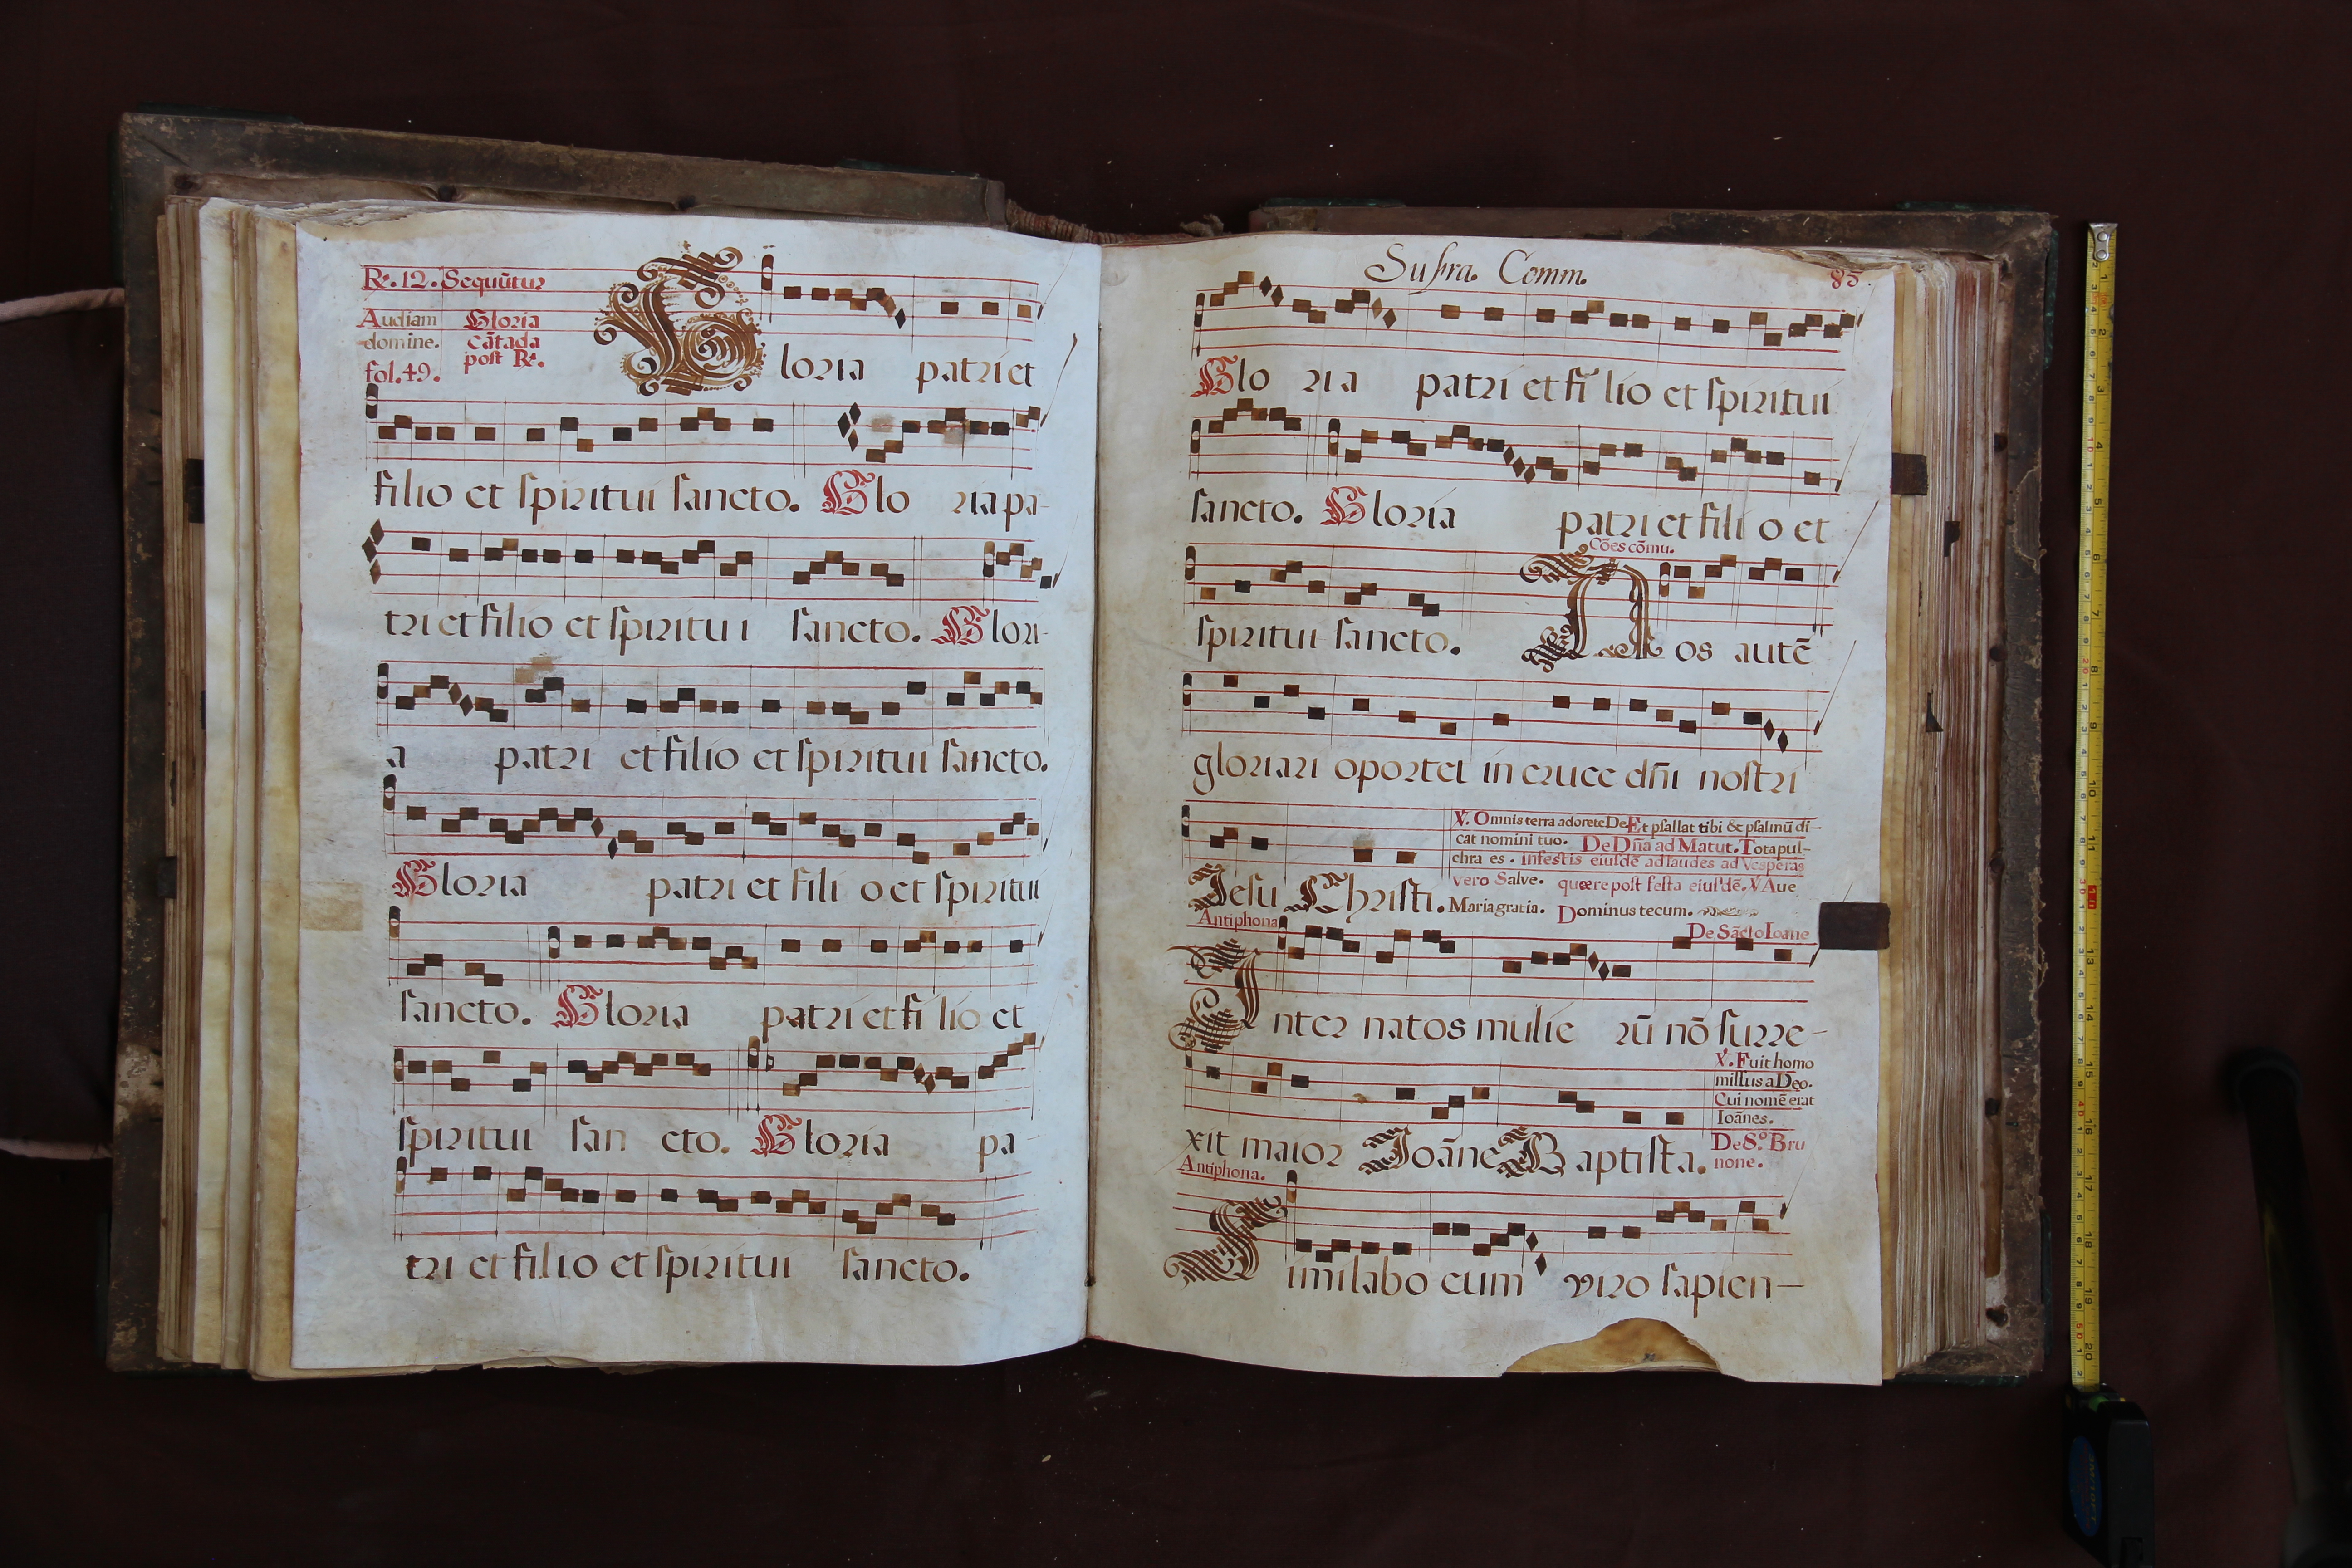 R. 12. Sequūtur
Audiam Gloria
domine. cātada
post R.
fol. 49.
Gloria patri et
filio et spiritui sancto. Glo ria pa-
tri et filio et spiritui sancto. Glori-
a patri et filio et spiritui sancto.
Gloria patri et fili o et spiritui
sancto. Gloria patri et fi lio et
spiritui san cto. Gloria pa-
tri et filio et spiritui sancto.
Supra. Comm. 85.
Glo ria patri et fi lio et spiritui
sancto. Gloria patri et fili o et
Cōes cōmu.
spiritui sancto. Nos autē
gloriari oportet in cruce dñi nostri
℣. Omnis terra adorete De Et psallat tibi & psalmū di-
cat nomini tuo. De Dña ad Matut. Tota pul-
chra es. In festis eiusdē ad laudes ad Vesperas
vero Salve. quære post festa eiusdē. ℣ Aue
Jesu Christi. Maria gratia. Dominus tecum.
Antiphona De Sācto Ioane
Inter natos mulie rū nō surre-
℣. Fuit homo
missus a Deo.
Cui nomē erat
Ioānes.
xit maior Joāne Baptista. De S.º Bru
none.
Antiphona.
Similabo eum viro sapien-